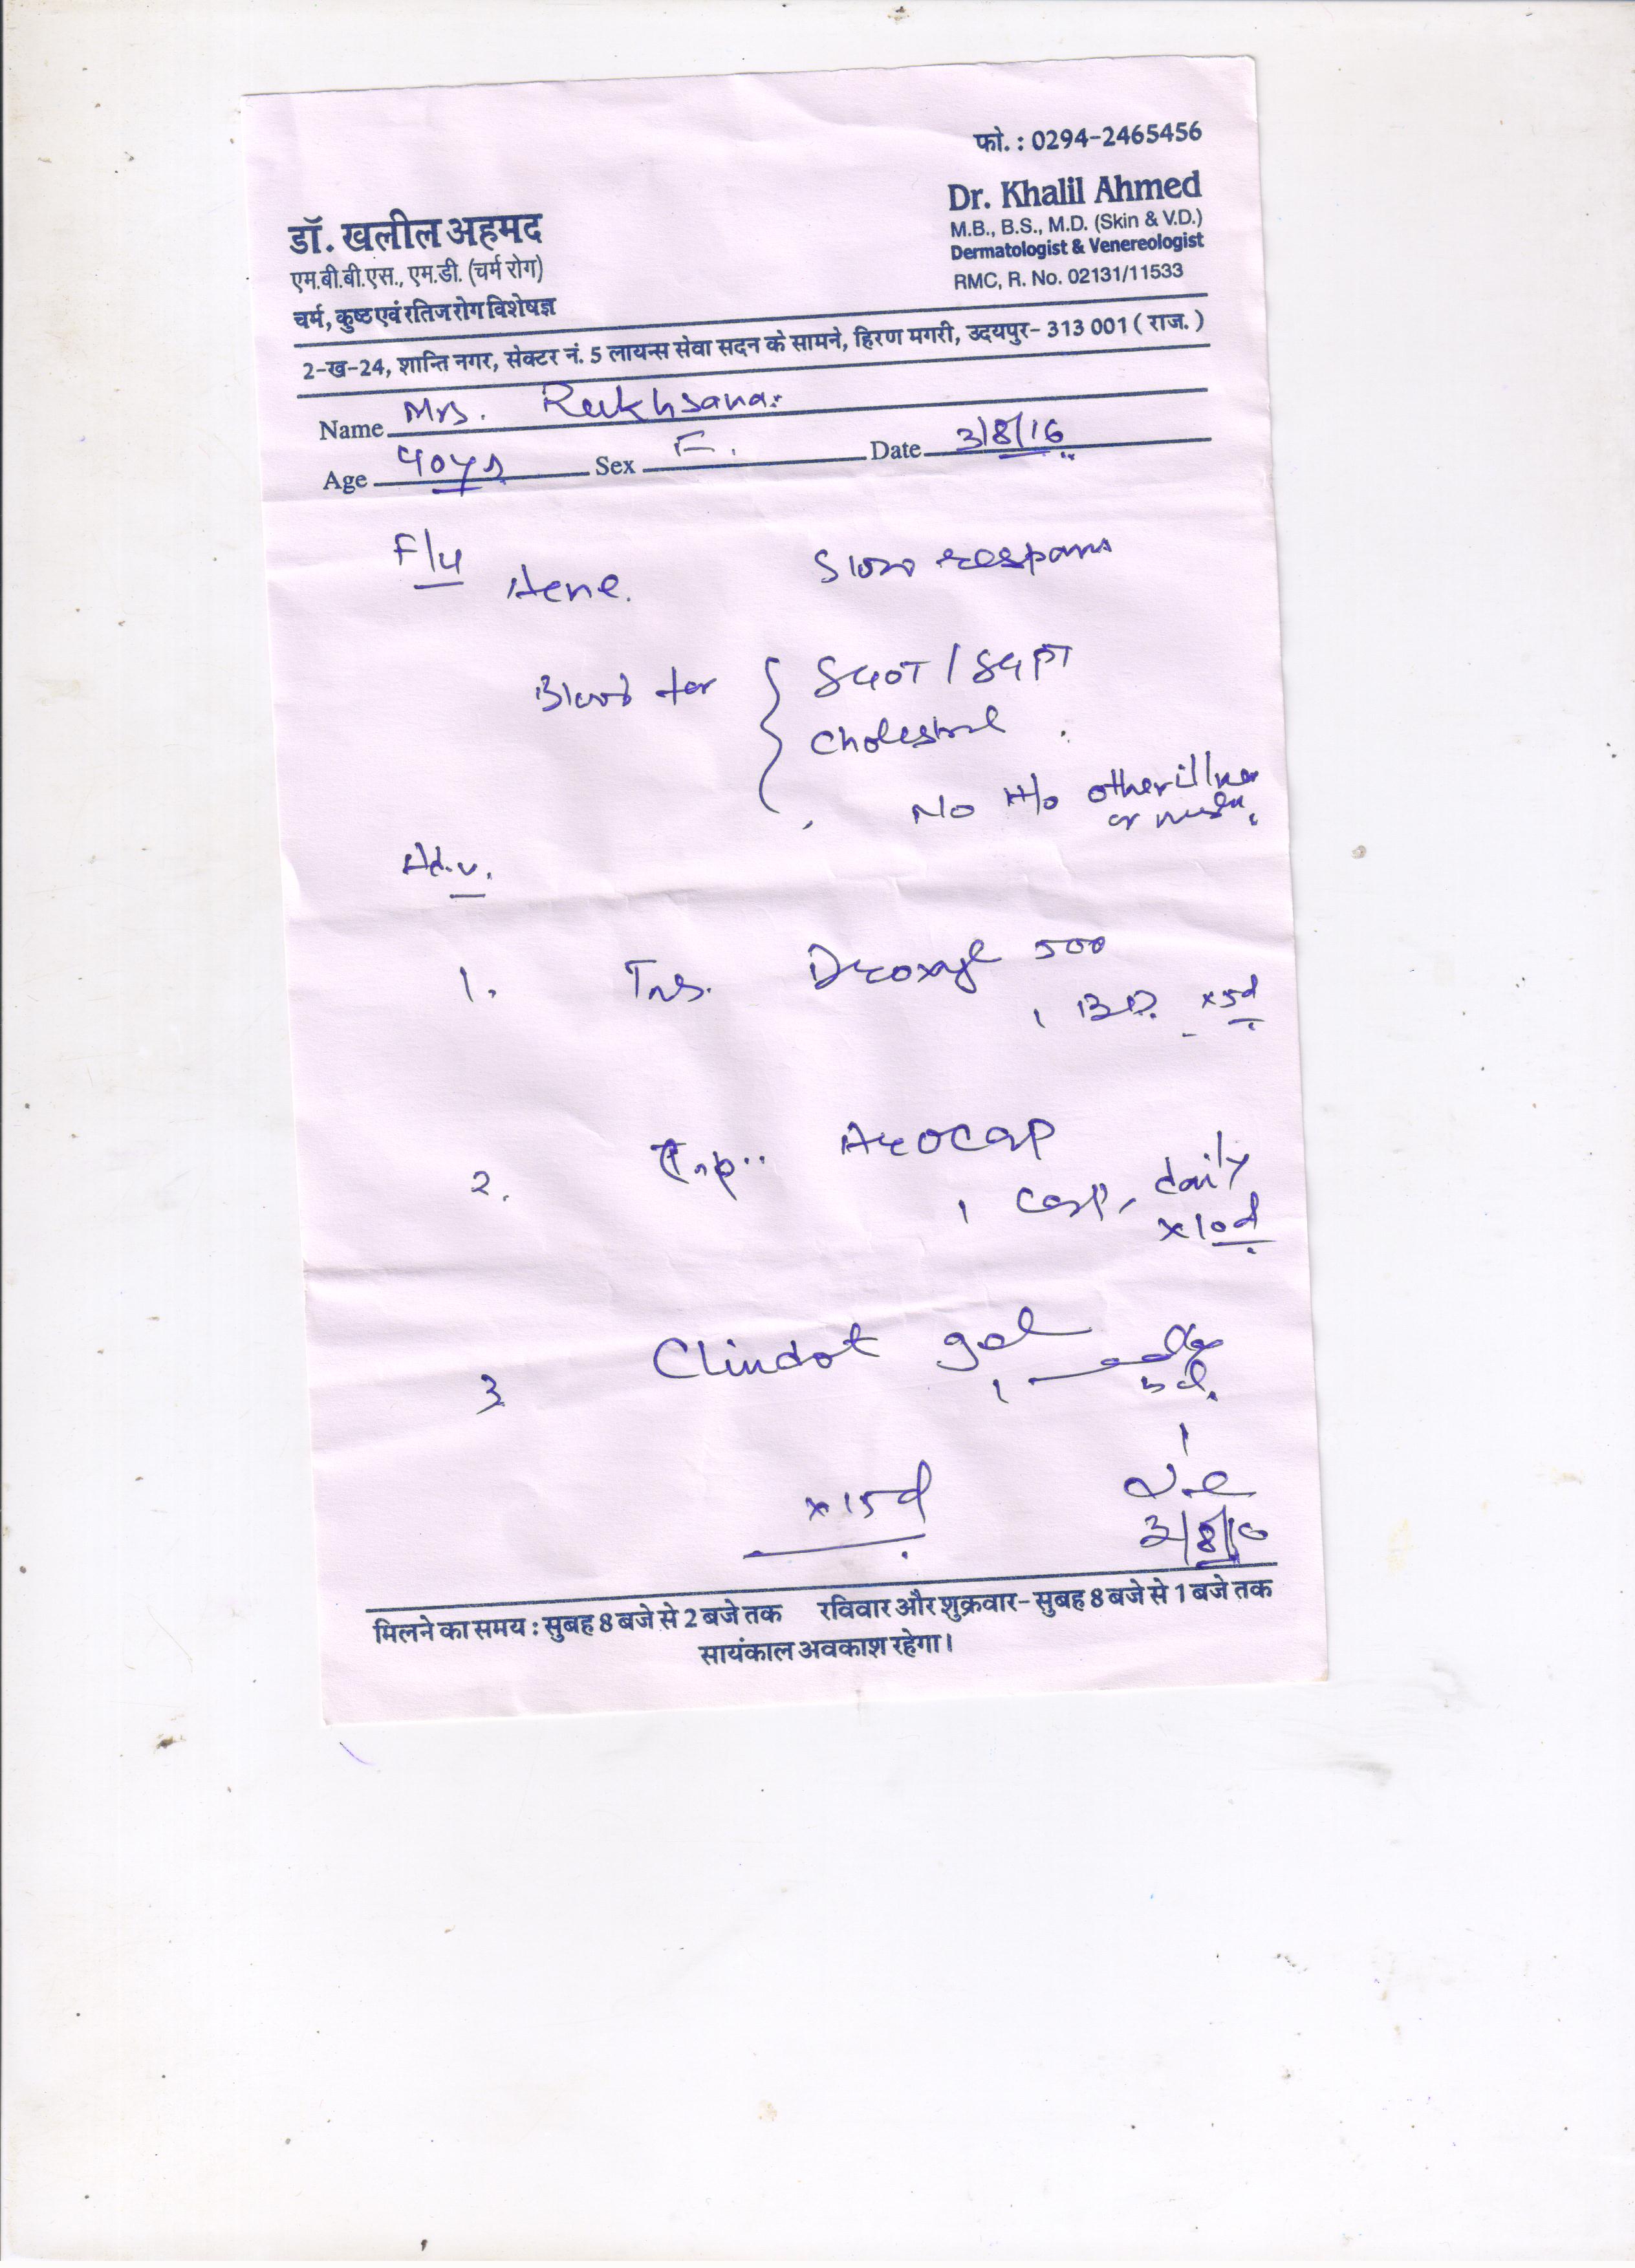 फो. : 0294-2465456
डॉ. खलील अहमद
एम.बी.बी.एस., एम.डी. (चर्म रोग)
चर्म, कुष्ठ एवं रतिज रोग विशेषज्ञ
Dr. Khalil Ahmed
M.B., B.S., M.D. (Skin & V.D.)
Dermatologist & Venereologist
RMC, R. No. 02131/11533
2-ख-24, शान्ति नगर, सेक्टर नं. 5 लायन्स सेवा सदन के सामने, हिरण मगरी, उदयपुर- 313 001 ( राज. )
Name Mrs. Rukhsana
Age 40ys Sex F. Date 3/8/16
F/u Acne. Slow respons
Blood for { SGOT / SGPT
Cholestrol
No H/o other illness
or
Adv.
1. Tab. Droxyl 500
1 BD. x5d
2. Cap. Acocap
1 cap. daily
x10d
3 Clindot gel
x 15d
3/8/16
मिलने का समय : सुबह 8 बजे से 2 बजे तक रविवार और शुक्रवार- सुबह 8 बजे से 1 बजे तक
सायंकाल अवकाश रहेगा।